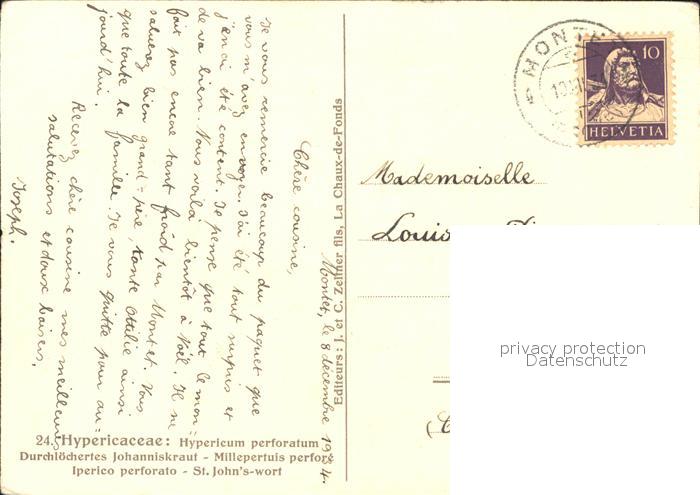 Montet, le 8 décembre 1934.
Chère cousine,
Je vous remercie beaucoup du paquet que
vous m'avez envoyé. J'ai été tout surpris et
j'en ai été content. Je pense que tout le mon=
de va bien. Nous voilà bientôt à Noël. Il ne
fait pas encore tant froid par Montet. Vous
saluerez bien grand=père, tante Ottilie ainsi
que toute la famille. Je vous quitte pour au=
jourd'hui.
Recevez chère cousine mes meilleures
salutations et doux baisers.
Joseph.
24. Hypericaceae: Hypericum perforatum
Durchlöchertes Johanniskraut - Millepertuis perforé
Iperico perforato - St. John's-wort
Editeurs: J. et C. Zellner fils, La Chaux-de-Fonds
MONTET
10
HELVETIA
Mademoiselle
privacy protection
Datenschutz